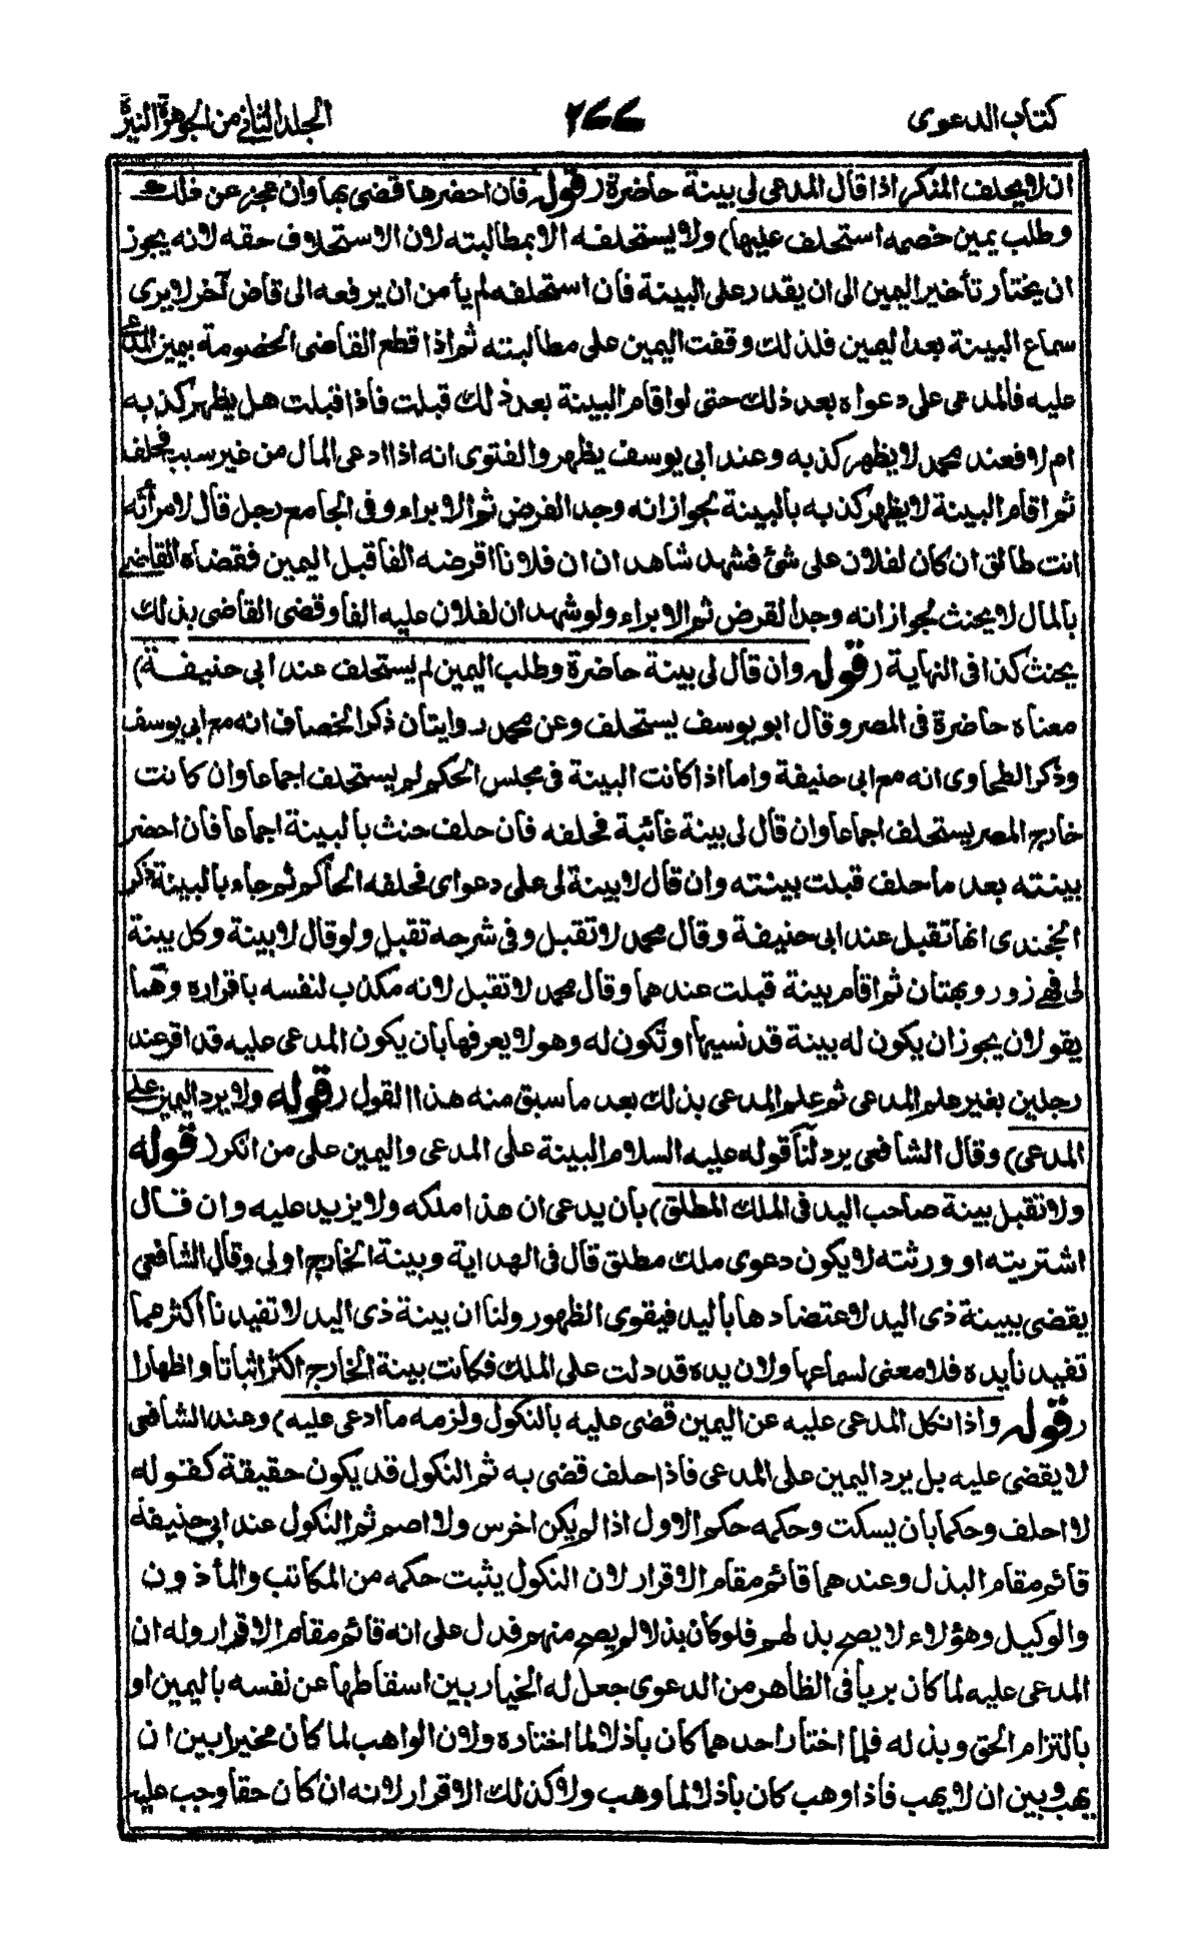 كتاب الدعوى
٢٦٦
الجلد الثاني من الجوهرة النيرة
ان لا يحلف المنكر اذا قال المدعى لى بينة حاضرة (قوله فان احضرها قضى بها وان عجز عن ذلك
وطلب يمين خصمه استحلف عليها) ولا يستحلفه الا بمطالبته لان الاستحلاف حقه لانه يجوز
ان يختار تأخير اليمين الى ان يقدر على البينة فان استحلفه لم يأمن ان يرفعه الى قاض آخر لا يرى
سماع البينة بعد اليمين فلذلك وقفت اليمين على مطالبته ثم اذا قطع القاضى الخصومة بيمين المدعى
عليه فالمدعى على دعواه بعد ذلك حتى لو اقام البينة بعد ذلك قبلت فاذا قبلت هل يظهر كذبه
ام لا فعند محمد لا يظهر كذبه وعند ابى يوسف يظهر والفتوى انه اذا ادعى المال من غير سبب فحلف
ثم اقام البينة لا يظهر كذبه بالبينة لجواز انه وجد القرض ثم الابراء وفى الجامع رجل قال لامرأته
انت طالق ان كان لفلان على شئ فشهد شاهدان ان فلانا اقرضه الفا قبل اليمين فقضاه القاضى
بالمال لا يحنث لجواز انه وجد القرض ثم الابراء ولو شهد ان لفلان عليه الفا وقضى القاضى بذلك
يحنث كذا فى النهاية (قوله وان قال لى بينة حاضرة وطلب اليمين لم يستحلف عند ابى حنيفة)
معناه حاضرة فى المصر وقال ابو يوسف يستحلف وعن محمد روايتان ذكر الخصاف انه مع ابى يوسف
وذكر الطحاوى انه مع ابى حنيفة واما اذا كانت البينة فى مجلس الحكم لم يستحلف اجماعا وان كانت
خارج المصر يستحلف اجماعا وان قال لى بينة غائبة فحلفه فان حلف حنث بالبينة اجماعا فان احضر
بينته بعد ما حلف قبلت بينته وان قال لا بينة لى على دعواى فحلفه الحاكم ثم جاء بالبينة ذكر
الخجندى انها تقبل عند ابى حنيفة وقال محمد لا تقبل وفى شرحه تقبل ولو قال لا بينة وكل بينة
لى فهى زور وبهتان ثم اقام بينة قبلت عندهما وقال محمد لا تقبل لانه مكذب لنفسه باقراره وهما
يقولان يجوز ان يكون له بينة قد نسيها او تكون له وهو لا يعرفها بان يكون المدعى عليه قد اقر عند
رجلين بغير علم المدعى ثم علم المدعى بذلك بعد ما سبق منه هذا القول (قوله ولا يرد اليمين على
المدعى) وقال الشافعى يرد لنا قوله عليه السلام البينة على المدعى واليمين على من انكر (قوله
ولا تقبل بينة صاحب اليد فى الملك المطلق) بان يدعى ان هذا ملكه ولا يزيد عليه وان قال
اشتريته او ورثته لا يكون دعوى ملك مطلق قال فى الهداية وبينة الخارج اولى وقال الشافعى
يقضى ببينة ذى اليد لاعتضادها باليد فيقوى الظهور ولنا ان بينة ذى اليد لا تفيدنا اكثر مما
تفيدنا يده فلا معنى لسماعها ولان يده قد دلت على الملك فكانت بينة الخارج اكثر اثباتا واظهارا
(قوله واذا نكل المدعى عليه عن اليمين قضى عليه بالنكول ولزمه ما ادعى عليه) وعند الشافعى
لا يقضى عليه بل يرد اليمين على المدعى فاذا حلف قضى به ثم النكول قد يكون حقيقة كقوله
لا احلف وحكما بان يسكت وحكمه حكم الاول اذا لم يكن اخرس ولا اصم ثم النكول عند ابى حنيفة
قائم مقام البذل وعندهما قائم مقام الاقرار لان النكول يثبت حكمه من المكاتب والمأذون
والوكيل وهؤلاء لا يصح بذلهم فلو كان بذلا لم يصح منهم فدل على انه قائم مقام الاقرار وله ان
المدعى عليه لما كان بريا فى الظاهر من الدعوى جعل له الخيار بين اسقاطها عن نفسه باليمين او
بالتزام الحق وبذله فلما اختار احدهما كان باذلا لما اختاره ولان الواهب لما كان مخيرا بين ان
يهب وبين ان لا يهب فاذا وهب كان باذلا لما وهب ولا كذلك الاقرار لانه ان كان حقا وجب عليه